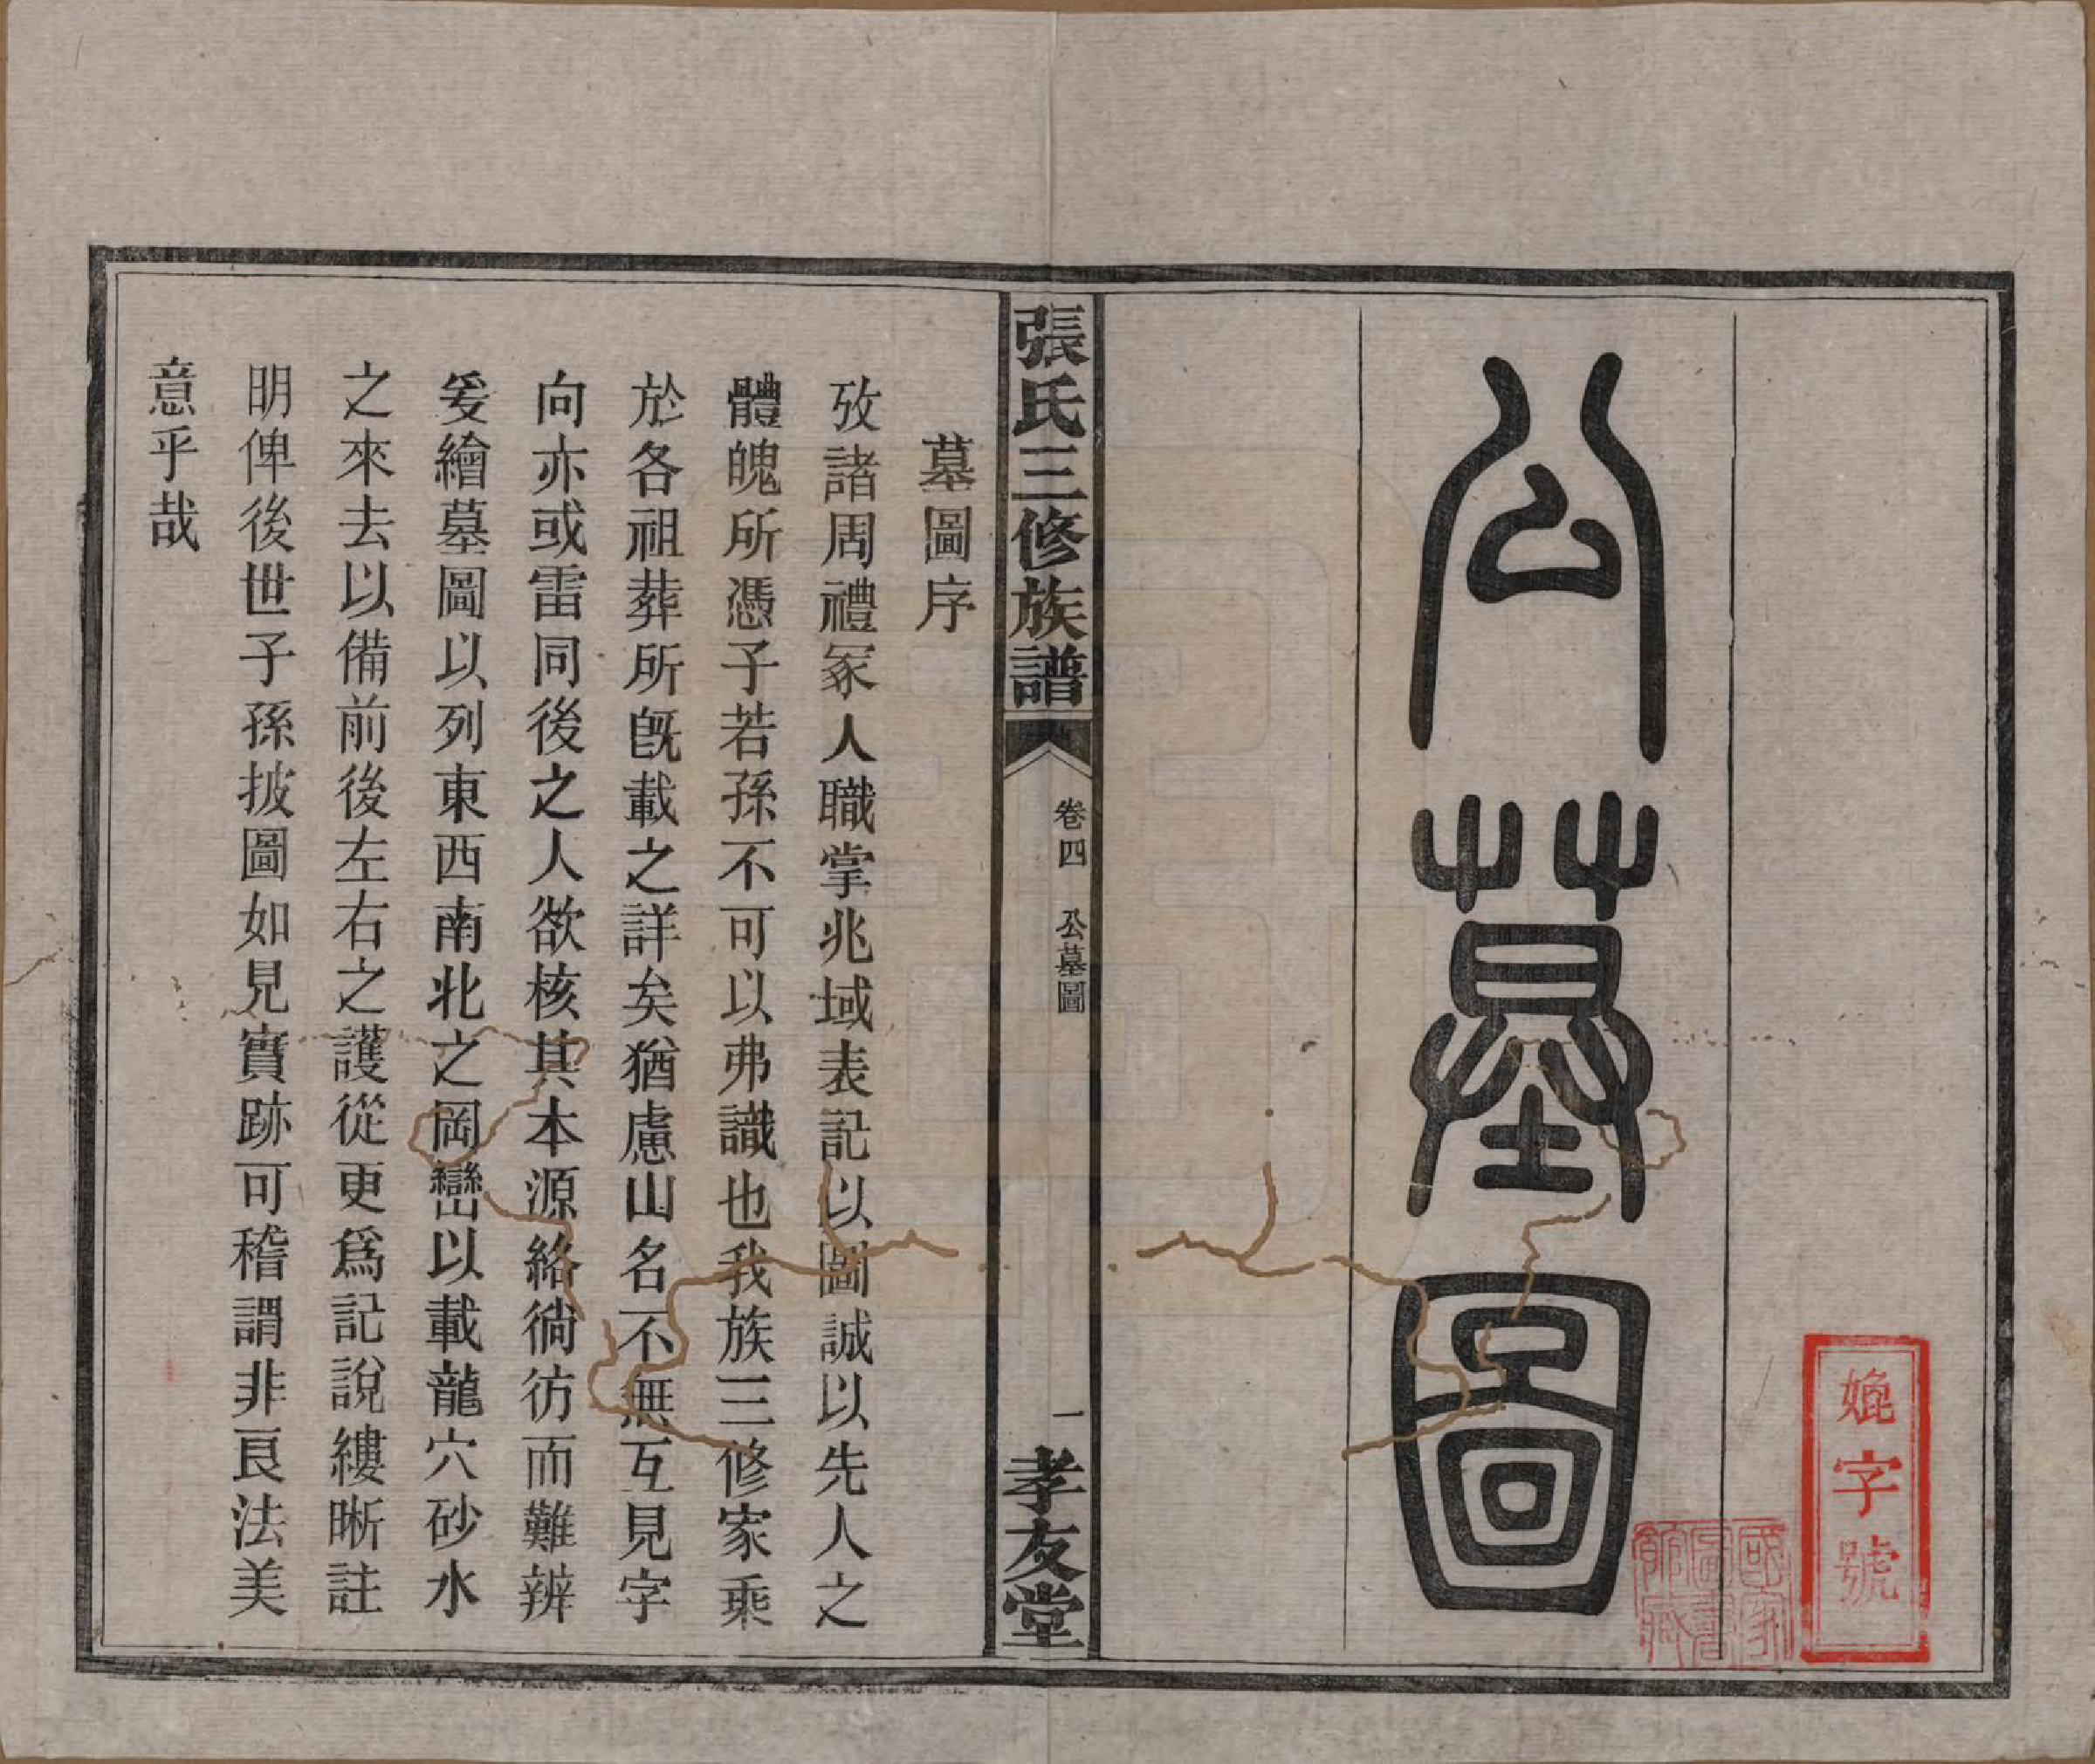 公墓圖
字號
國家圖書館藏
張氏三修族譜
卷四
公墓圖
一
孝友堂
墓圖序
攷諸周禮冢人職掌兆域表記以圖誠以先人之
體魄所憑子若孫不可以弗識也我族三修家乘
於各祖葬所旣載之詳矣猶慮山名不無互見字
向亦或雷同後之人欲核其本源絡徜彷而難辨
爰繪墓圖以列東西南北之岡巒以載龍穴砂水
之來去以備前後左右之護從更爲記說縷晰註
明俾後世子孫披圖如見實跡可稽謂非良法美
意乎哉